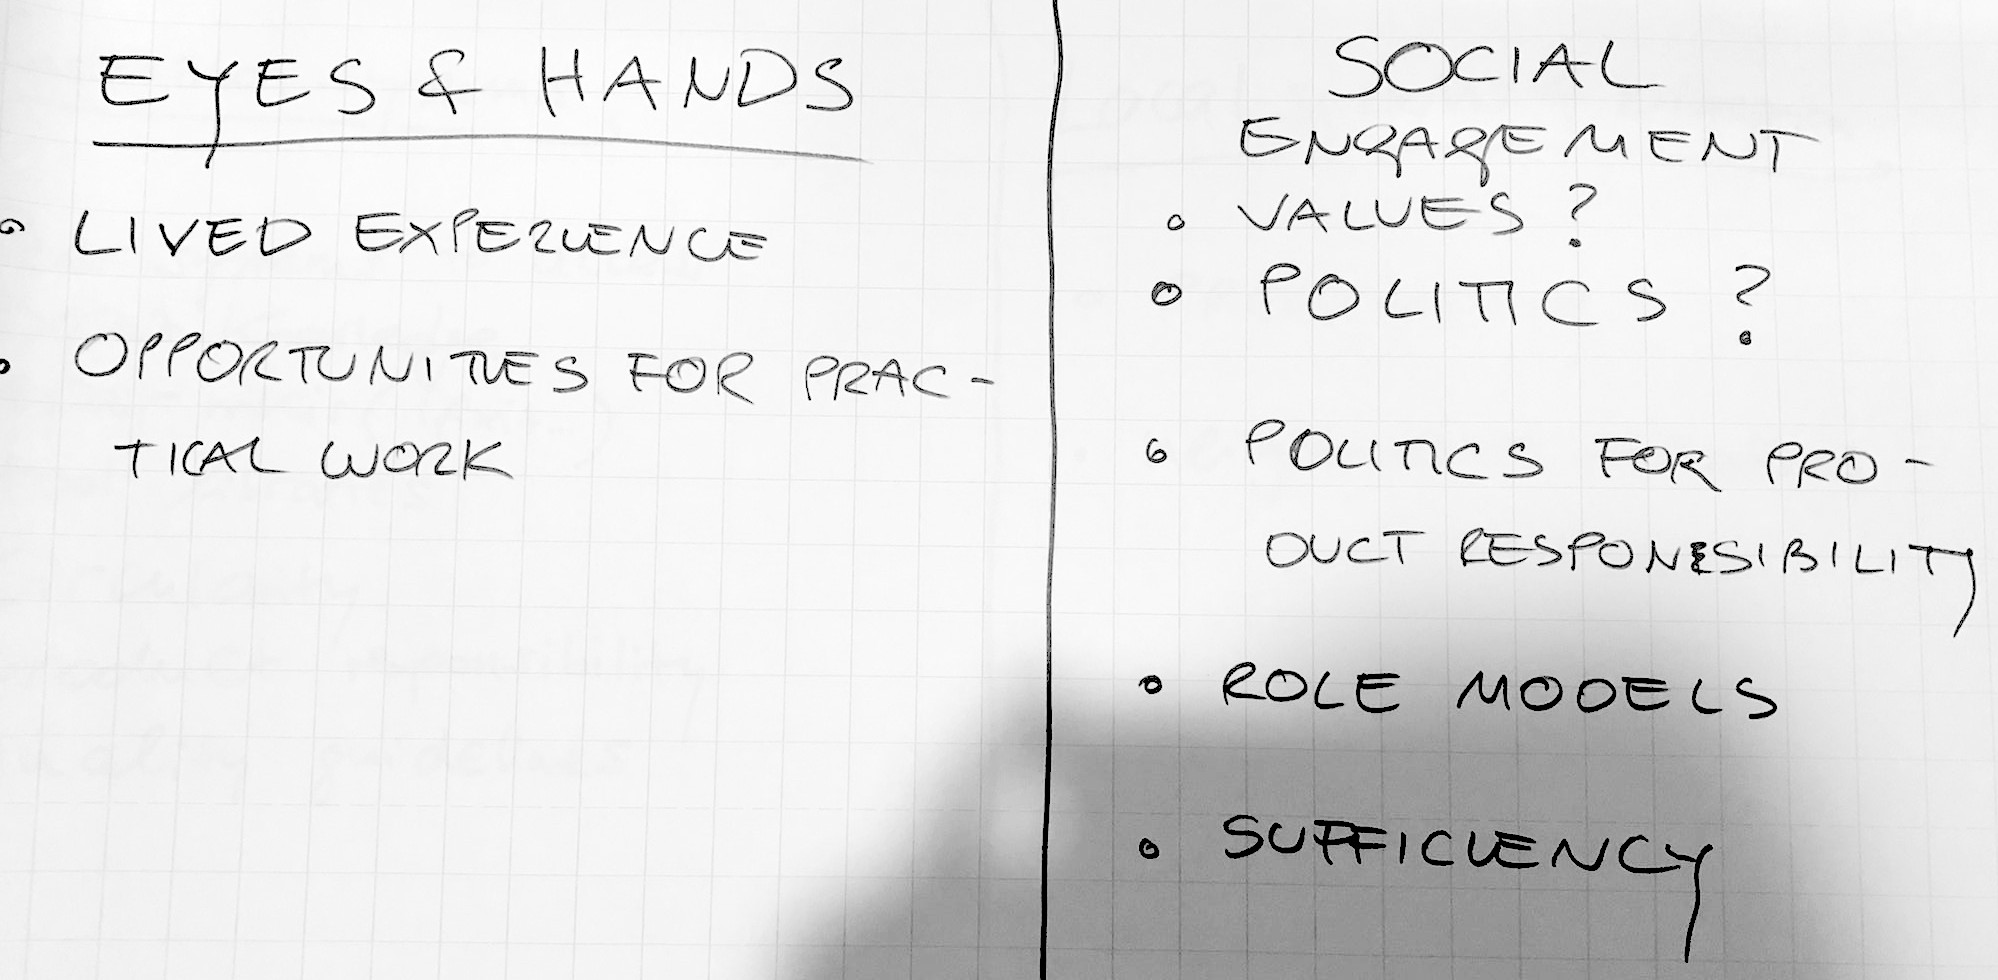 EYES & HANDS
• LIVED EXPERIENCE
• OPPORTUNITIES FOR PRAC-
TICAL WORK
SOCIAL
ENGAGEMENT
• VALUES?
• POLITICS?
• POLITICS FOR PRO-
DUCT RESPONSIBILITY
• ROLE MODELS
• SUFFICIENCY